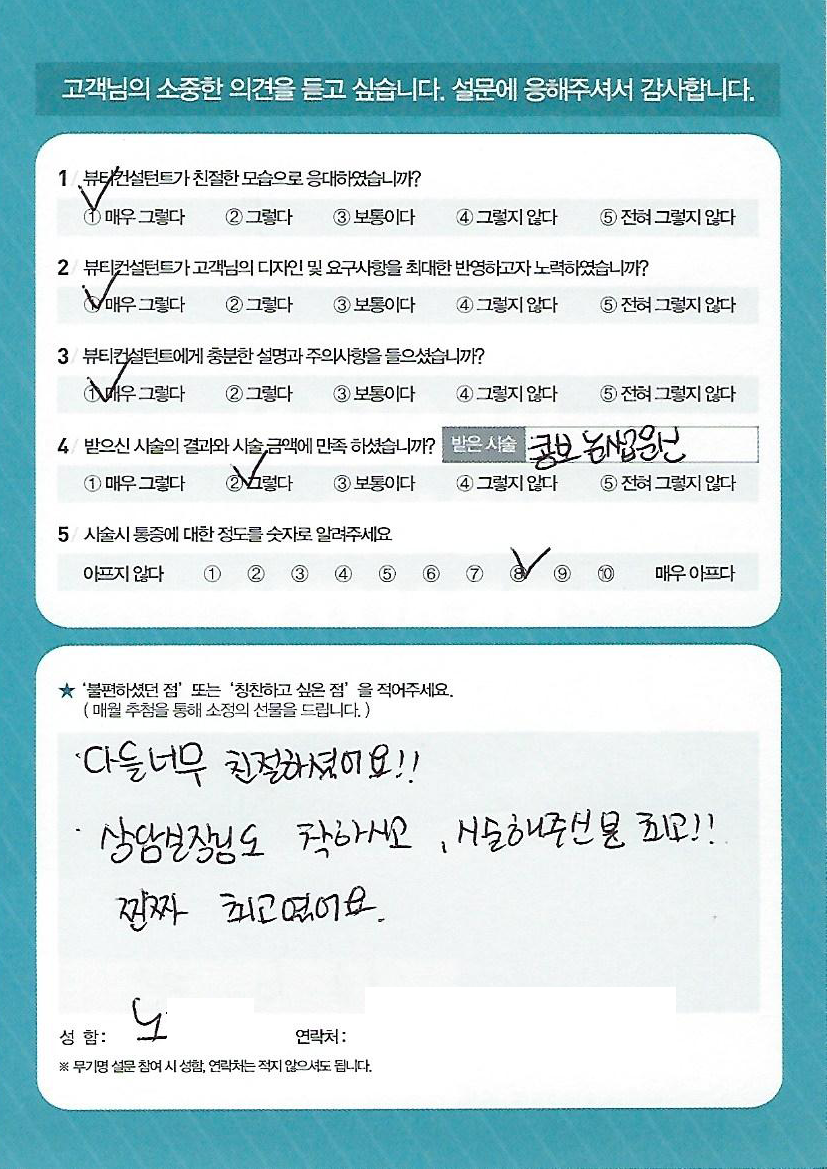 고객님의 소중한 의견을 듣고 싶습니다. 설문에 응해주셔서 감사합니다.
1 / 뷰티컨설턴트가 친절한 모습으로 응대하였습니까?
① 매우 그렇다 ② 그렇다 ③ 보통이다 ④ 그렇지 않다 ⑤ 전혀 그렇지 않다
2 / 뷰티컨설턴트가 고객님의 디자인 및 요구사항을 최대한 반영하고자 노력하였습니까?
① 매우 그렇다 ② 그렇다 ③ 보통이다 ④ 그렇지 않다 ⑤ 전혀 그렇지 않다
3 / 뷰티컨설턴트에게 충분한 설명과 주의사항을 들으셨습니까?
① 매우 그렇다 ② 그렇다 ③ 보통이다 ④ 그렇지 않다 ⑤ 전혀 그렇지 않다
4 / 받으신 시술의 결과와 시술 금액에 만족 하셨습니까? 받은 시술 콤보
① 매우 그렇다 ② 그렇다 ③ 보통이다 ④ 그렇지 않다 ⑤ 전혀 그렇지 않다
5 / 시술시 통증에 대한 정도를 숫자로 알려주세요
아프지 않다 ① ② ③ ④ ⑤ ⑥ ⑦ ⑧ ⑨ ⑩ 매우 아프다
★ '불편하셨던 점' 또는 '칭찬하고 싶은 점' 을 적어주세요.
( 매월 추첨을 통해 소정의 선물을 드립니다. )
· 다들너무 친절하셨어요!!
· 상담실장님도 착하시고, 시술해주신분 최고!!
찐짜 최고였어요.
성 함 : 노
연락처 :
※ 무기명 설문 참여 시 성함, 연락처는 적지 않으셔도 됩니다.